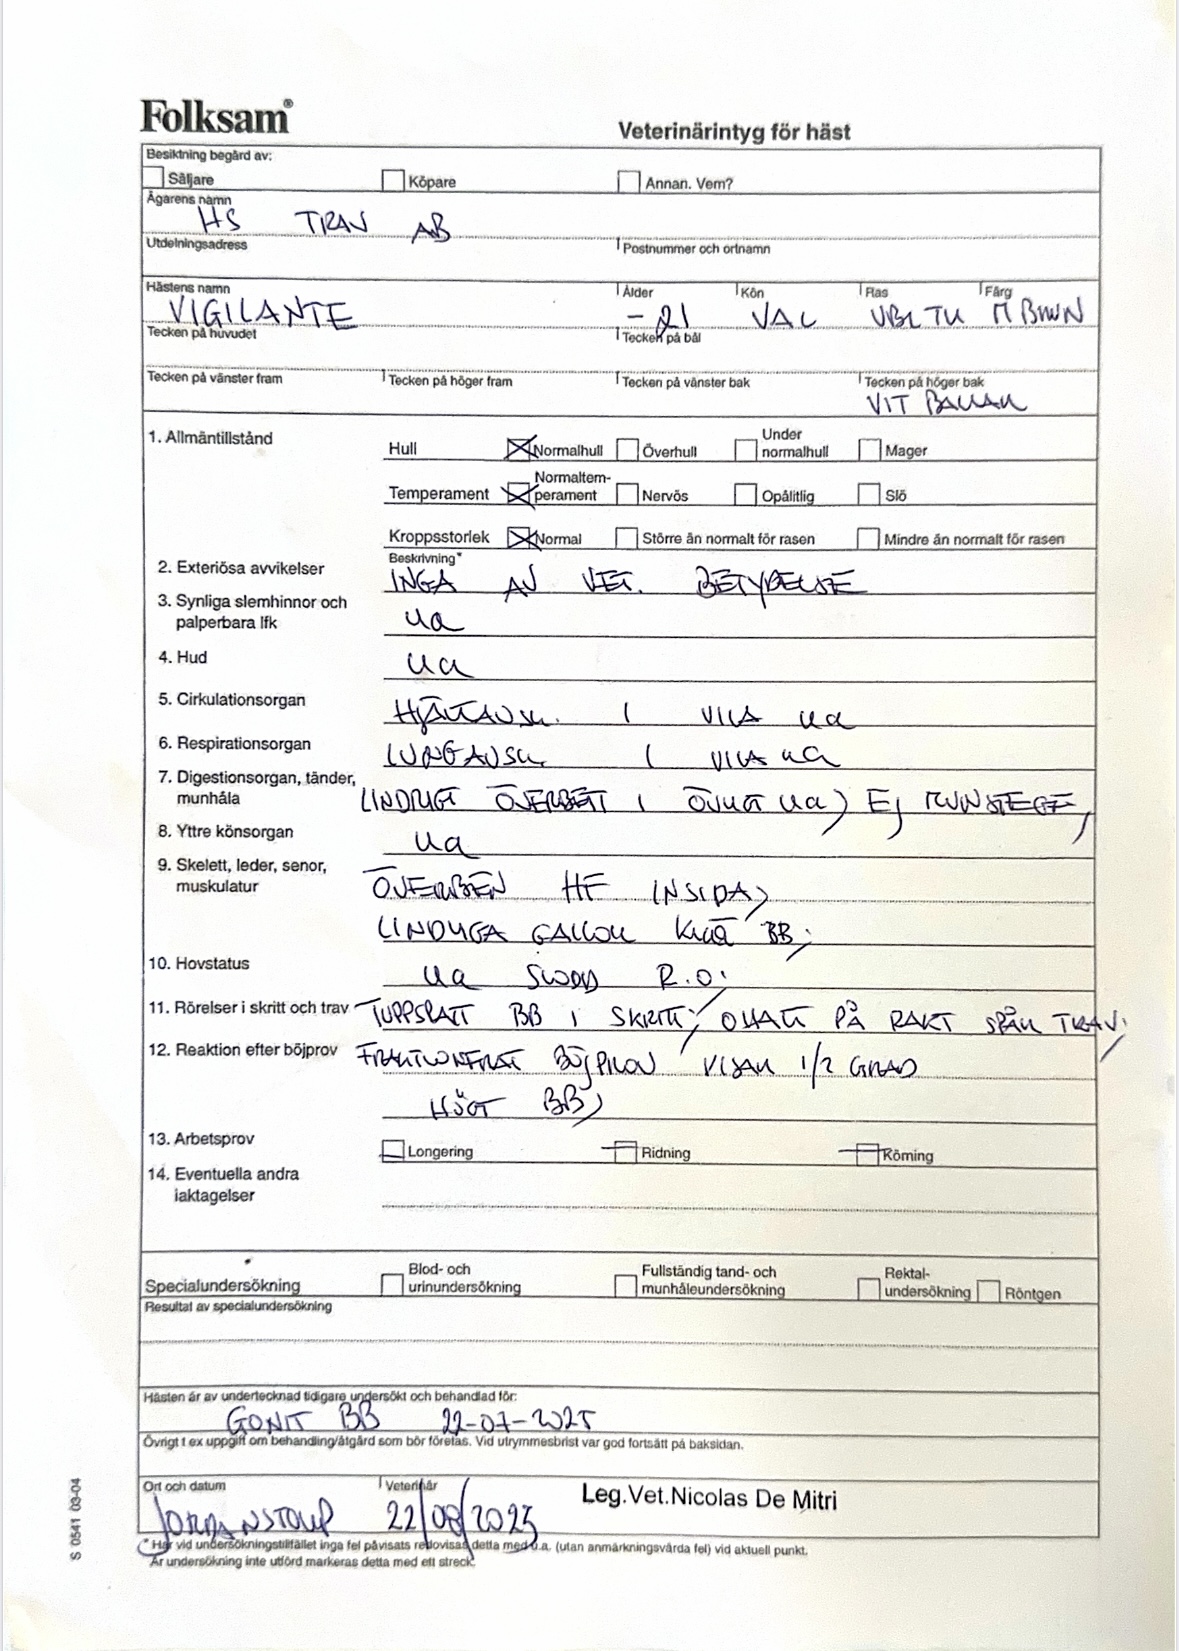 Folksam®
Veterinärintyg för häst
Besiktning begärd av:
Säljare Köpare Annan. Vem?
Ägarens namn
HS TRAV AB
Utdelningsadress Postnummer och ortnamn
Hästens namn Ålder Kön Ras Färg
VIGILANTE -21 VAL VBL TU M BRUN
Tecken på huvudet Tecken på bål
Tecken på vänster fram Tecken på höger fram Tecken på vänster bak Tecken på höger bak
VIT
1. Allmäntillstånd
Hull Normalhull Överhull Under normalhull Mager
Temperament Normaltem-perament Nervös Opålitlig Slö
Kroppsstorlek Normal Större än normalt för rasen Mindre än normalt för rasen
2. Exteriösa avvikelser Beskrivning*
INGA AV VET. BETYDELSE
3. Synliga slemhinnor och
palperbara lfk ua
4. Hud ua
5. Cirkulationsorgan HJÄRTAUSK. I VILA ua
6. Respirationsorgan LUNGAUSK. I VILA ua
7. Digestionsorgan, tänder,
munhåla LINDRIGT ÖVERBETT I ÖVRIGT ua, EJ
8. Yttre könsorgan ua
9. Skelett, leder, senor,
muskulatur ÖVERBEN HF INSIDA,
LINDRIGA GALLOR KNÄ BB,
10. Hovstatus ua SKODD R.O.
11. Rörelser i skritt och trav TUPPSPATT BB I SKRITT, OHALT PÅ RAKT SPÅR TRAV.
12. Reaktion efter böjprov FRAKTIONERAT BÖJPROV VISAR 1/2 GRAD
HÖGT BB,
13. Arbetsprov Longering Ridning Körning
14. Eventuella andra
iaktagelser
Specialundersökning Blod- och urinundersökning Fullständig tand- och munhåleundersökning Rektal-undersökning Röntgen
Resultat av specialundersökning
Hästen är av undertecknad tidigare undersökt och behandlad för:
GONIT BB 22-07-2025
Övrigt t ex uppgift om behandling/åtgärd som bör företas. Vid utrymmesbrist var god fortsätt på baksidan.
Ort och datum Veterinär
22/08/2025 Leg.Vet.Nicolas De Mitri
* Har vid undersökningstillfället inga fel påvisats redovisas detta med u.a. (utan anmärkningsvärda fel) vid aktuell punkt.
Är undersökning inte utförd markeras detta med ett streck.
S 0541 03-04